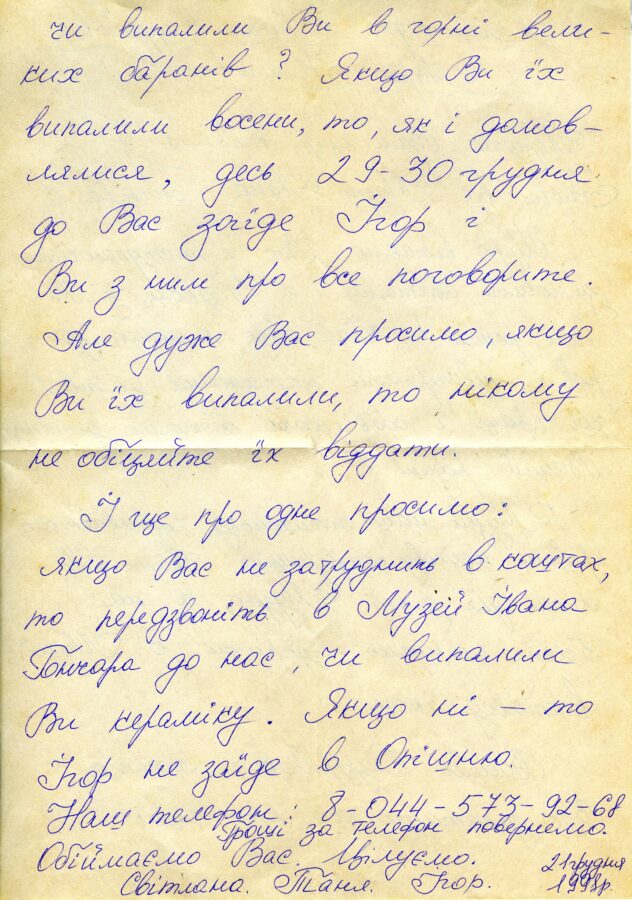 чи випалили Ви в горні вели-
ких баранів? Якщо Ви їх
випалили восени, то, як і домов-
лялися, десь 29-30 грудня
до Вас заїде Ігор і
Ви з ним про все поговорите.
Але дуже Вас просимо, якщо
Ви їх випалили, то нікому
не обіцяйте їх віддати.
І ще про одне просимо:
якщо Вас не затруднить в коштах,
то передзвоніть в Музей Івана
Гончара до нас, чи випалили
Ви кераміку. Якщо ні – то
Ігор не заїде в Опішню.
Наш телефон: 8-044-573-92-68
Гроші за телефон повернемо.
Обіймаємо Вас. Цілуємо.
Світлана. Таня. Ігор.
21 грудня
1998р.